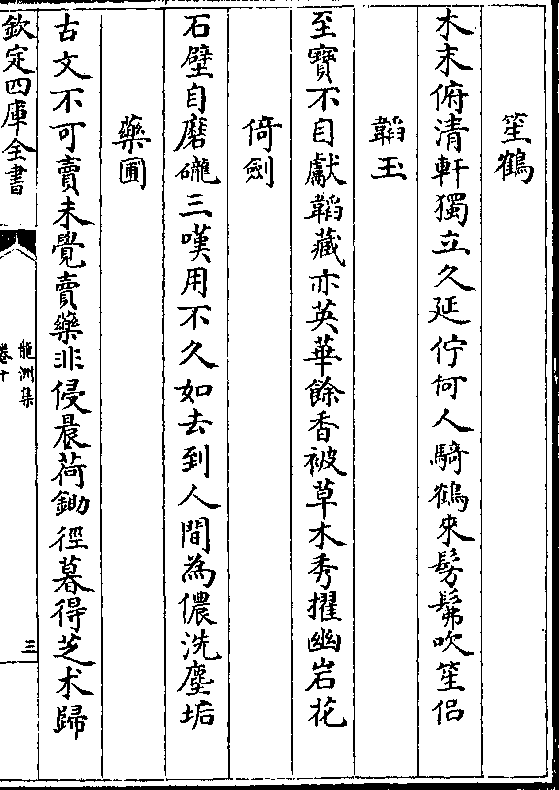 笙鶴
木末俯清軒獨立久延佇何人騎鶴來髣髴吹笙侣
韜玉
至寶不自獻韜藏亦英華餘香被草木秀擢幽岩花
倚劍
石壁自磨礲三嘆用不久如去到人間為儂洗塵垢
藥圃
古文不可賣未覺賣藥非侵晨荷鋤徑暮得芝术歸
欽定四庫全書
龍洲集
卷十
三